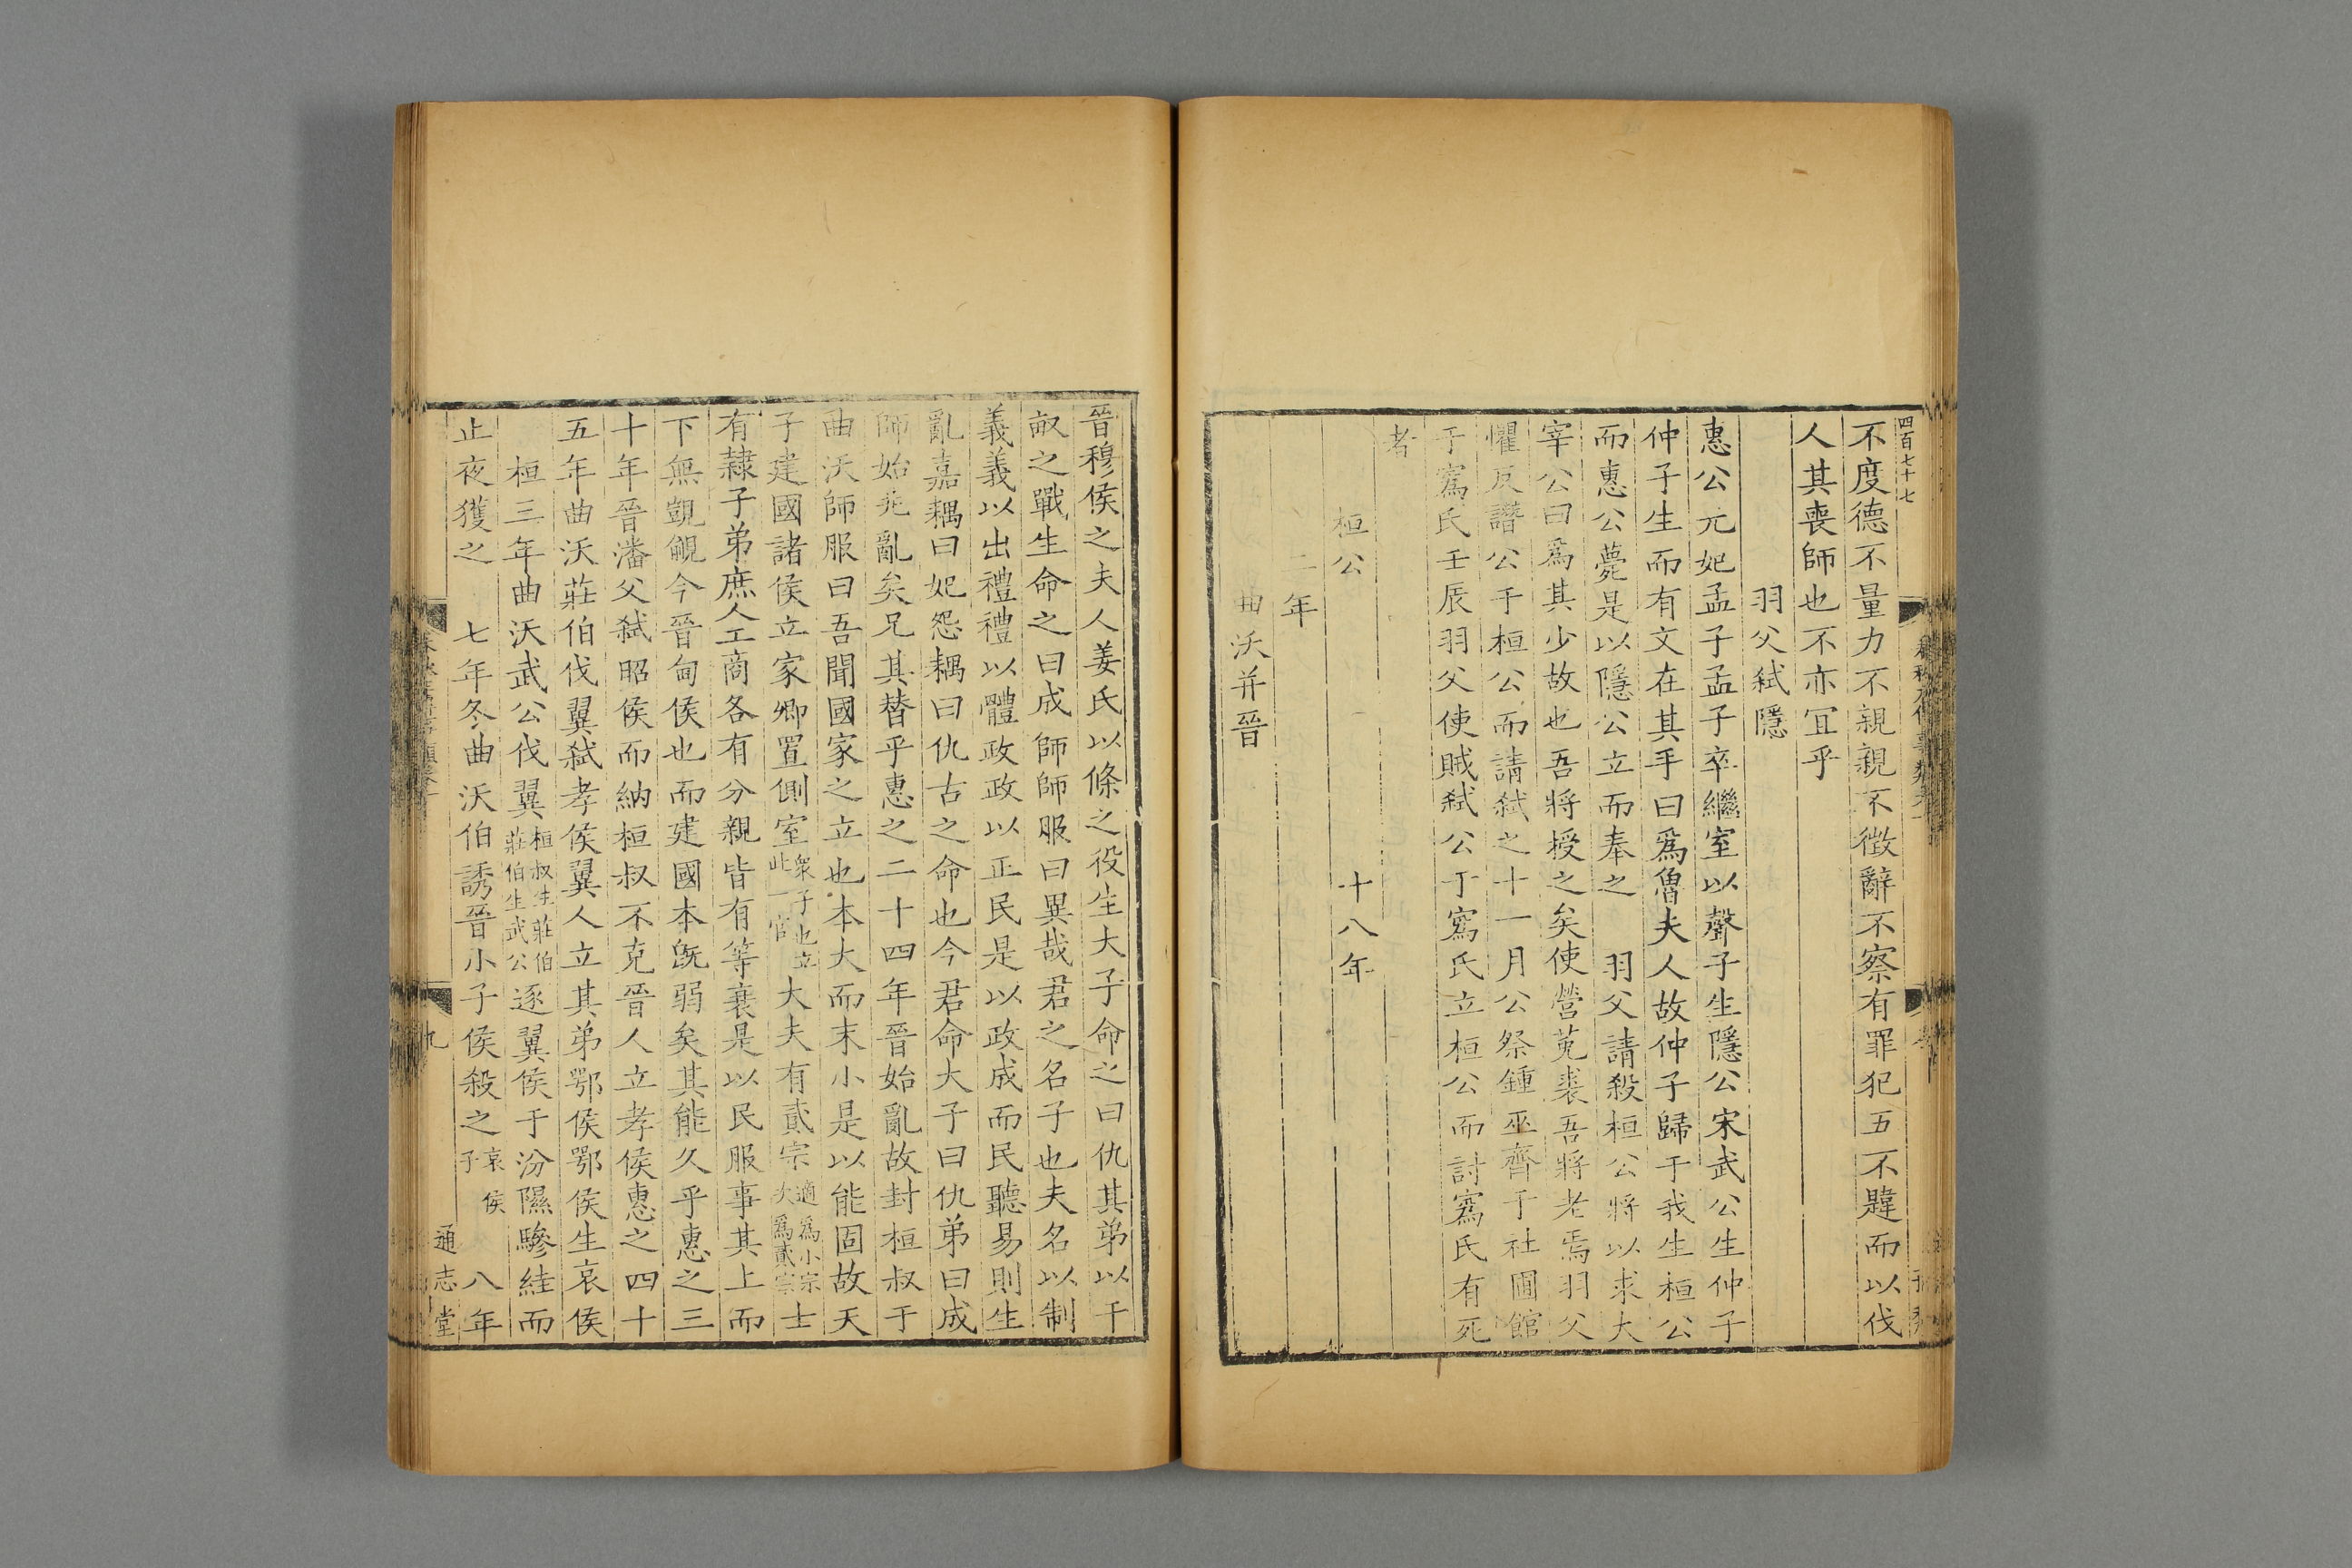 四百七十七
不度德不量力不親親不徵辭不察有罪犯五不韙而以伐
人其喪師也不亦宜乎
羽父弑隱
惠公元妃孟子孟子卒繼室以聲子生隱公宋武公生仲子
仲子生而有文在其手曰爲魯夫人故仲子歸于我生桓公
而惠公薨是以隱公立而奉之　羽父請殺桓公將以求大
宰公曰爲其少故也吾將授之矣使營菟裘吾將老焉羽父
懼反譖公于桓公而請弑之十一月公祭鍾巫齊于社圃館
于寪氏壬辰羽父使賊弑公于寪氏立桓公而討寪氏有死
者
桓公　十八年
二年
曲沃并晉
晉穆侯之夫人姜氏以條之役生大子命之曰仇其弟以千
畝之戰生命之曰成師師服曰異哉君之名子也夫名以制
義義以出禮禮以體政政以正民是以政成而民聽易則生
亂嘉耦曰妃怨耦曰仇古之命也今君命大子曰仇弟曰成
師始兆亂矣兄其替乎惠之二十四年晉始亂故封桓叔于
曲沃師服曰吾聞國家之立也本大而末小是以能固故天
子建國諸侯立家卿置側室衆子也立此一官大夫有貳宗適爲小宗次爲貳宗士
有隸子弟庶人工商各有分親皆有等衰是以民服事其上而
下無覬覦今晉甸侯也而建國本旣弱矣其能久乎惠之三
十年晉潘父弑昭侯而納桓叔不克晉人立孝侯惠之四十
五年曲沃莊伯伐翼弑孝侯翼人立其弟鄂侯鄂侯生哀侯
桓三年曲沃武公伐翼桓叔生莊伯莊伯生武公逐翼侯于汾隰驂絓而
止夜獲之　七年冬曲沃伯誘晉小子侯殺之哀侯子　八年
九
通志堂